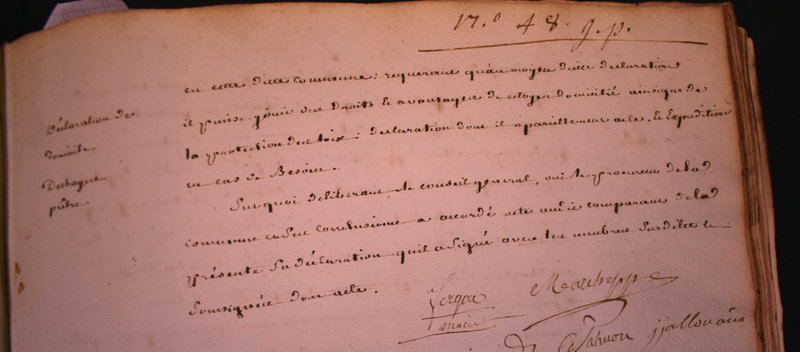 17.º 48. g.p.
Déclaration de
domicile
Deshayes
prêtre
en cette ditte commune : requerant qu'au moyen de cette declaration
il puisse jouir des droits & avantages de citoyen domicilié ainsique de
la protection des loix ; declaration dont il a pareillement acte, & Expedition
en cas de Besoin.
Sur quoi deliberant, le conseil general, oui le procureur de la
commune en ses conclusions a accordé acte audit comparant de la
présente sa déclaration qu'il a signé avec les membres susdits &
soussignés dont acte.
maire